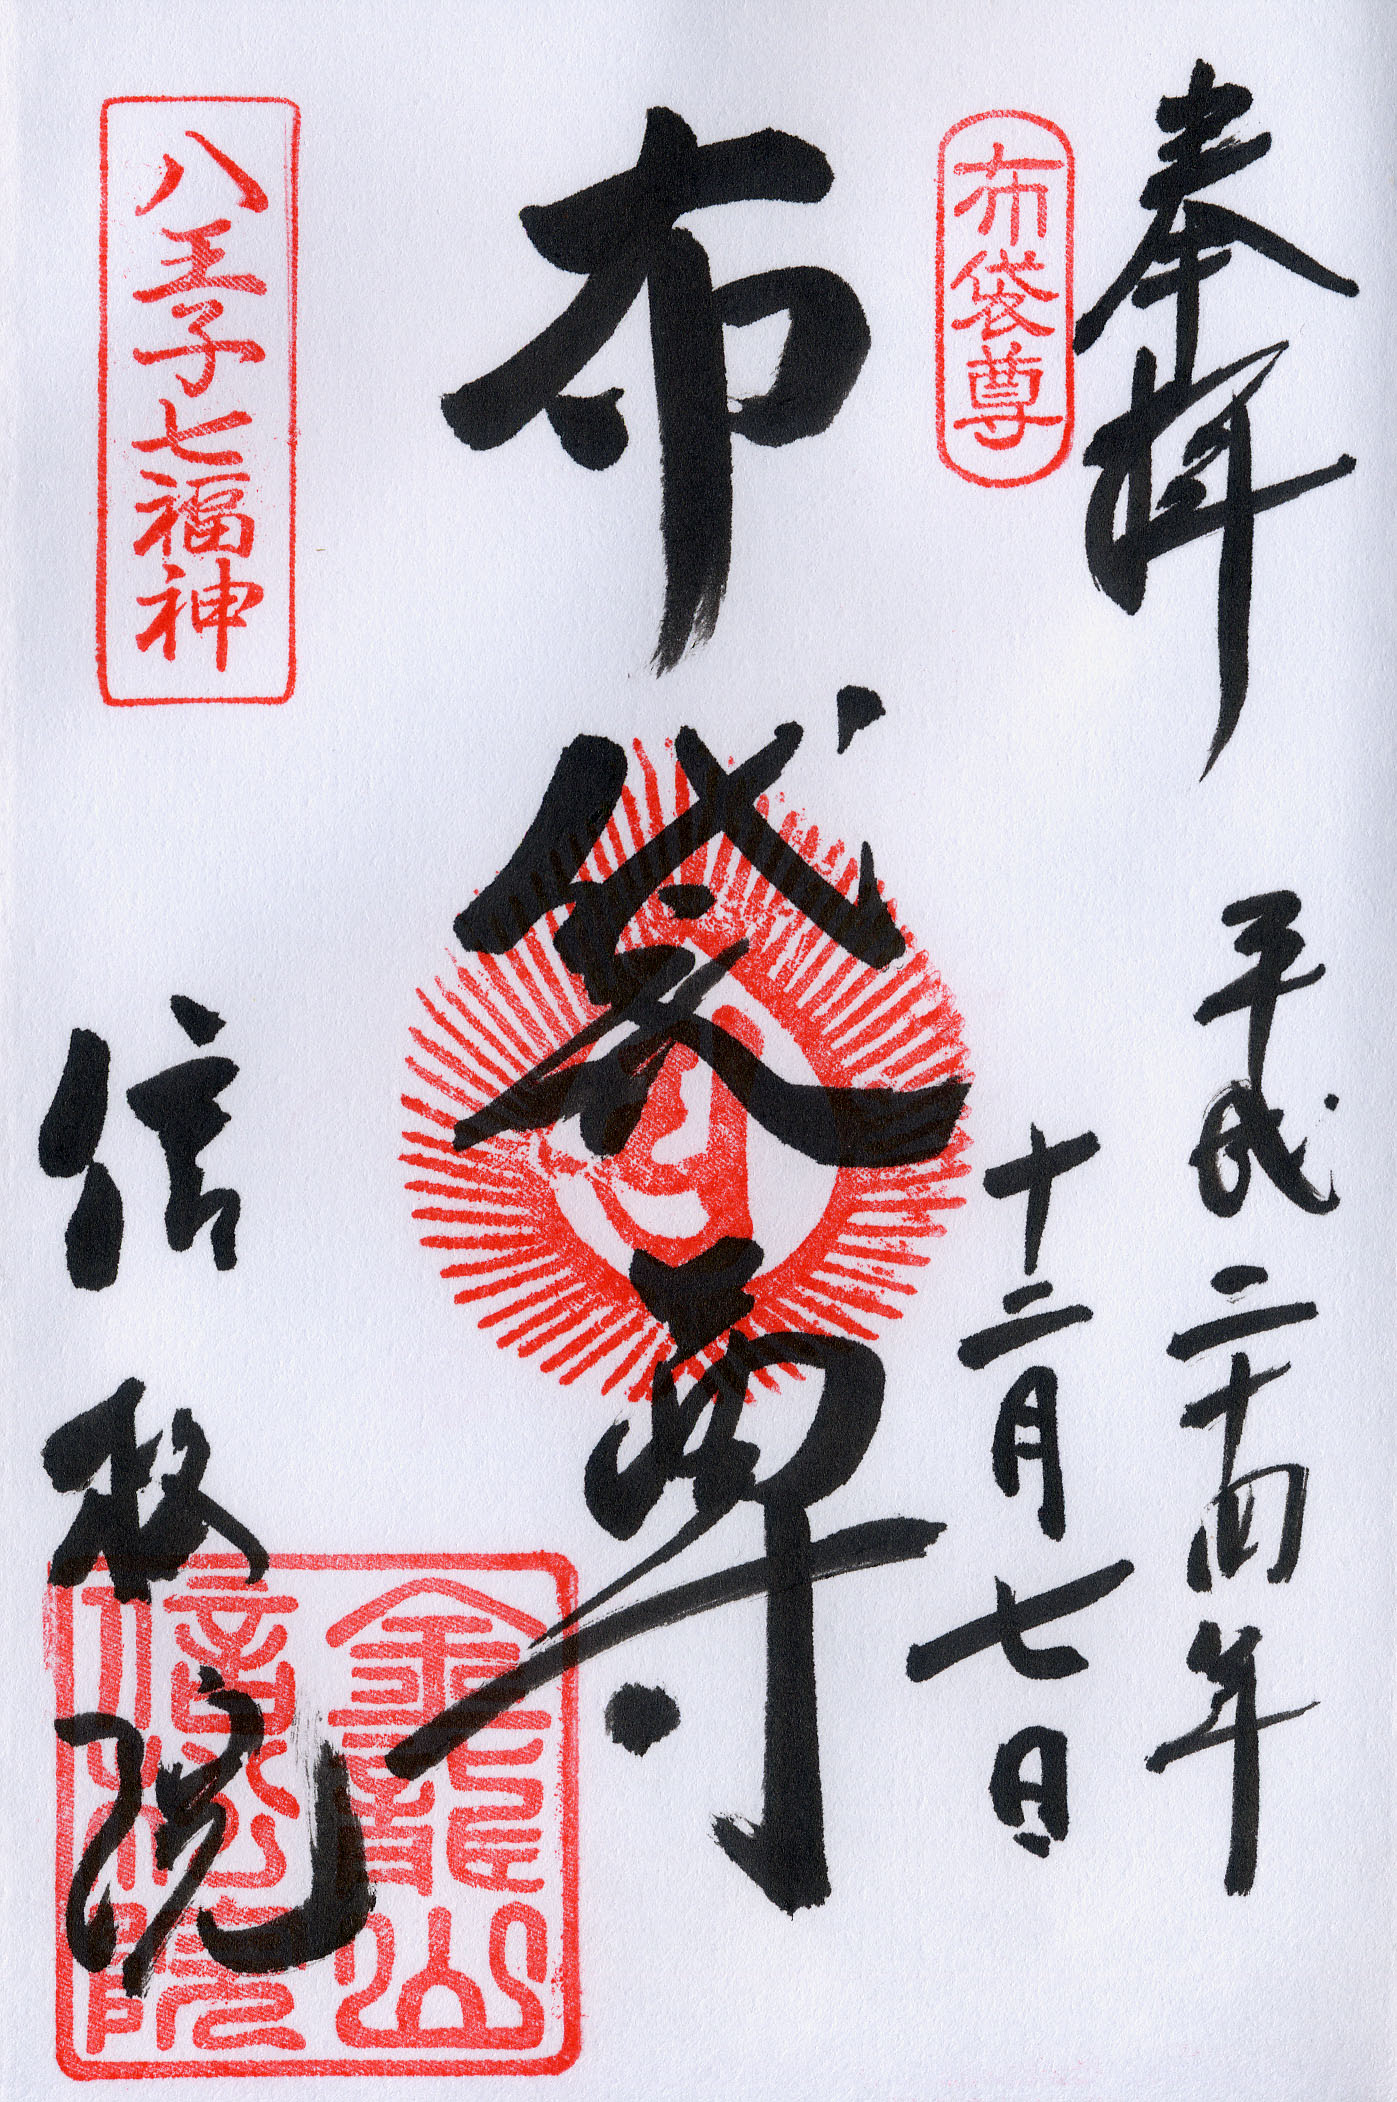 奉拝
平成二十四年
十二月七日
布袋尊
布袋尊
八王子七福神
信松院
金龍山
信松院